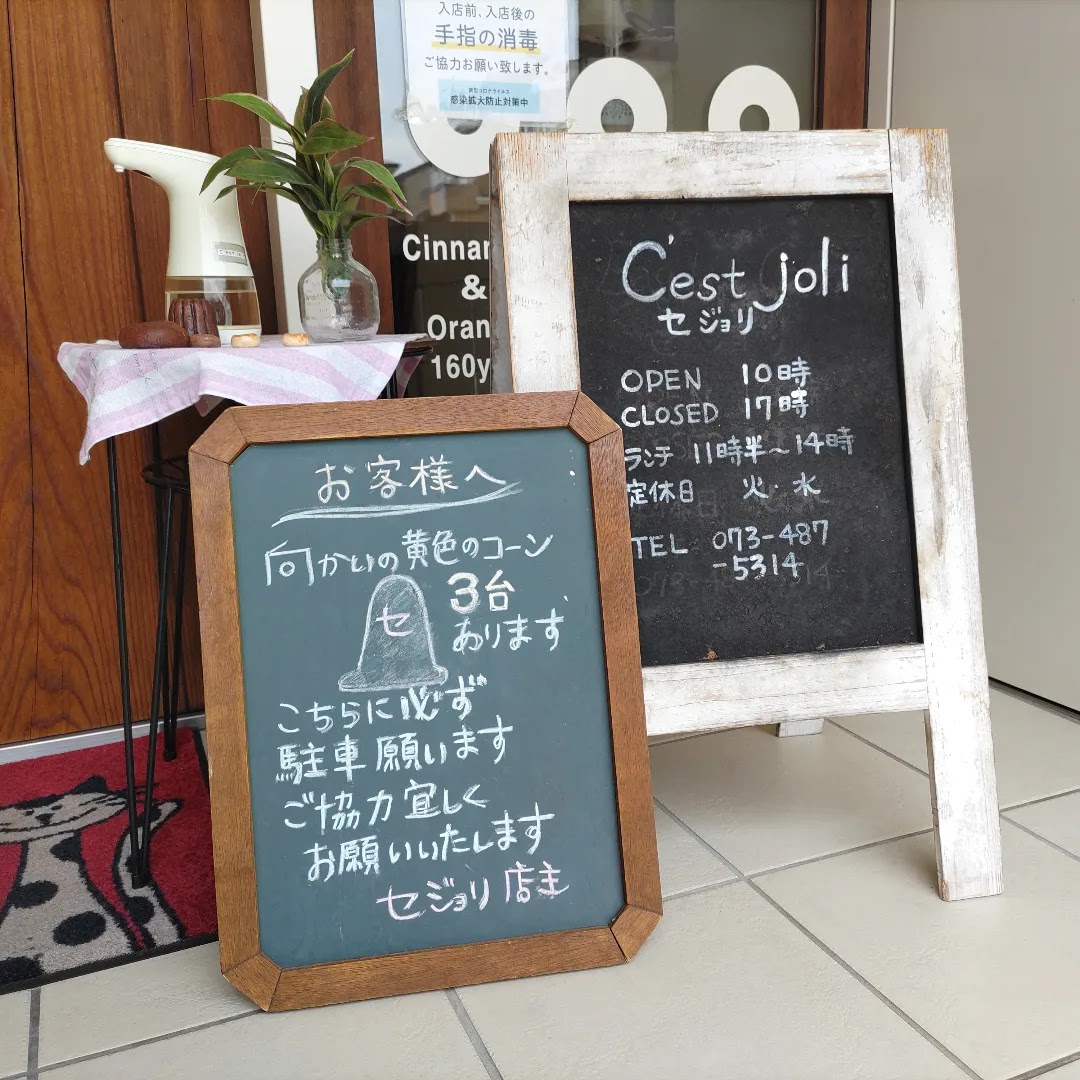 入店前、入店後の
手指の消毒
ご協力お願い致します。
新型コロナウイルス
感染拡大防止対策中
Cinnam
&
Oran
160y
C'est joli
セジョリ
OPEN 10時
CLOSED 17時
ランチ 11時半～14時
定休日 火・水
TEL 073-487
-5314
お客様へ
向かいの黄色のコーン
3台
セ
あります
こちらに必ず
駐車願います
ご協力宜しく
お願いいたします
セジョリ店主